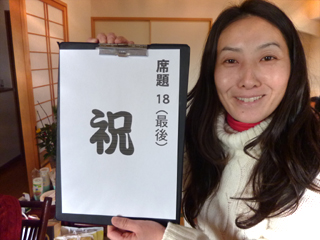 席題 18（最後）
祝